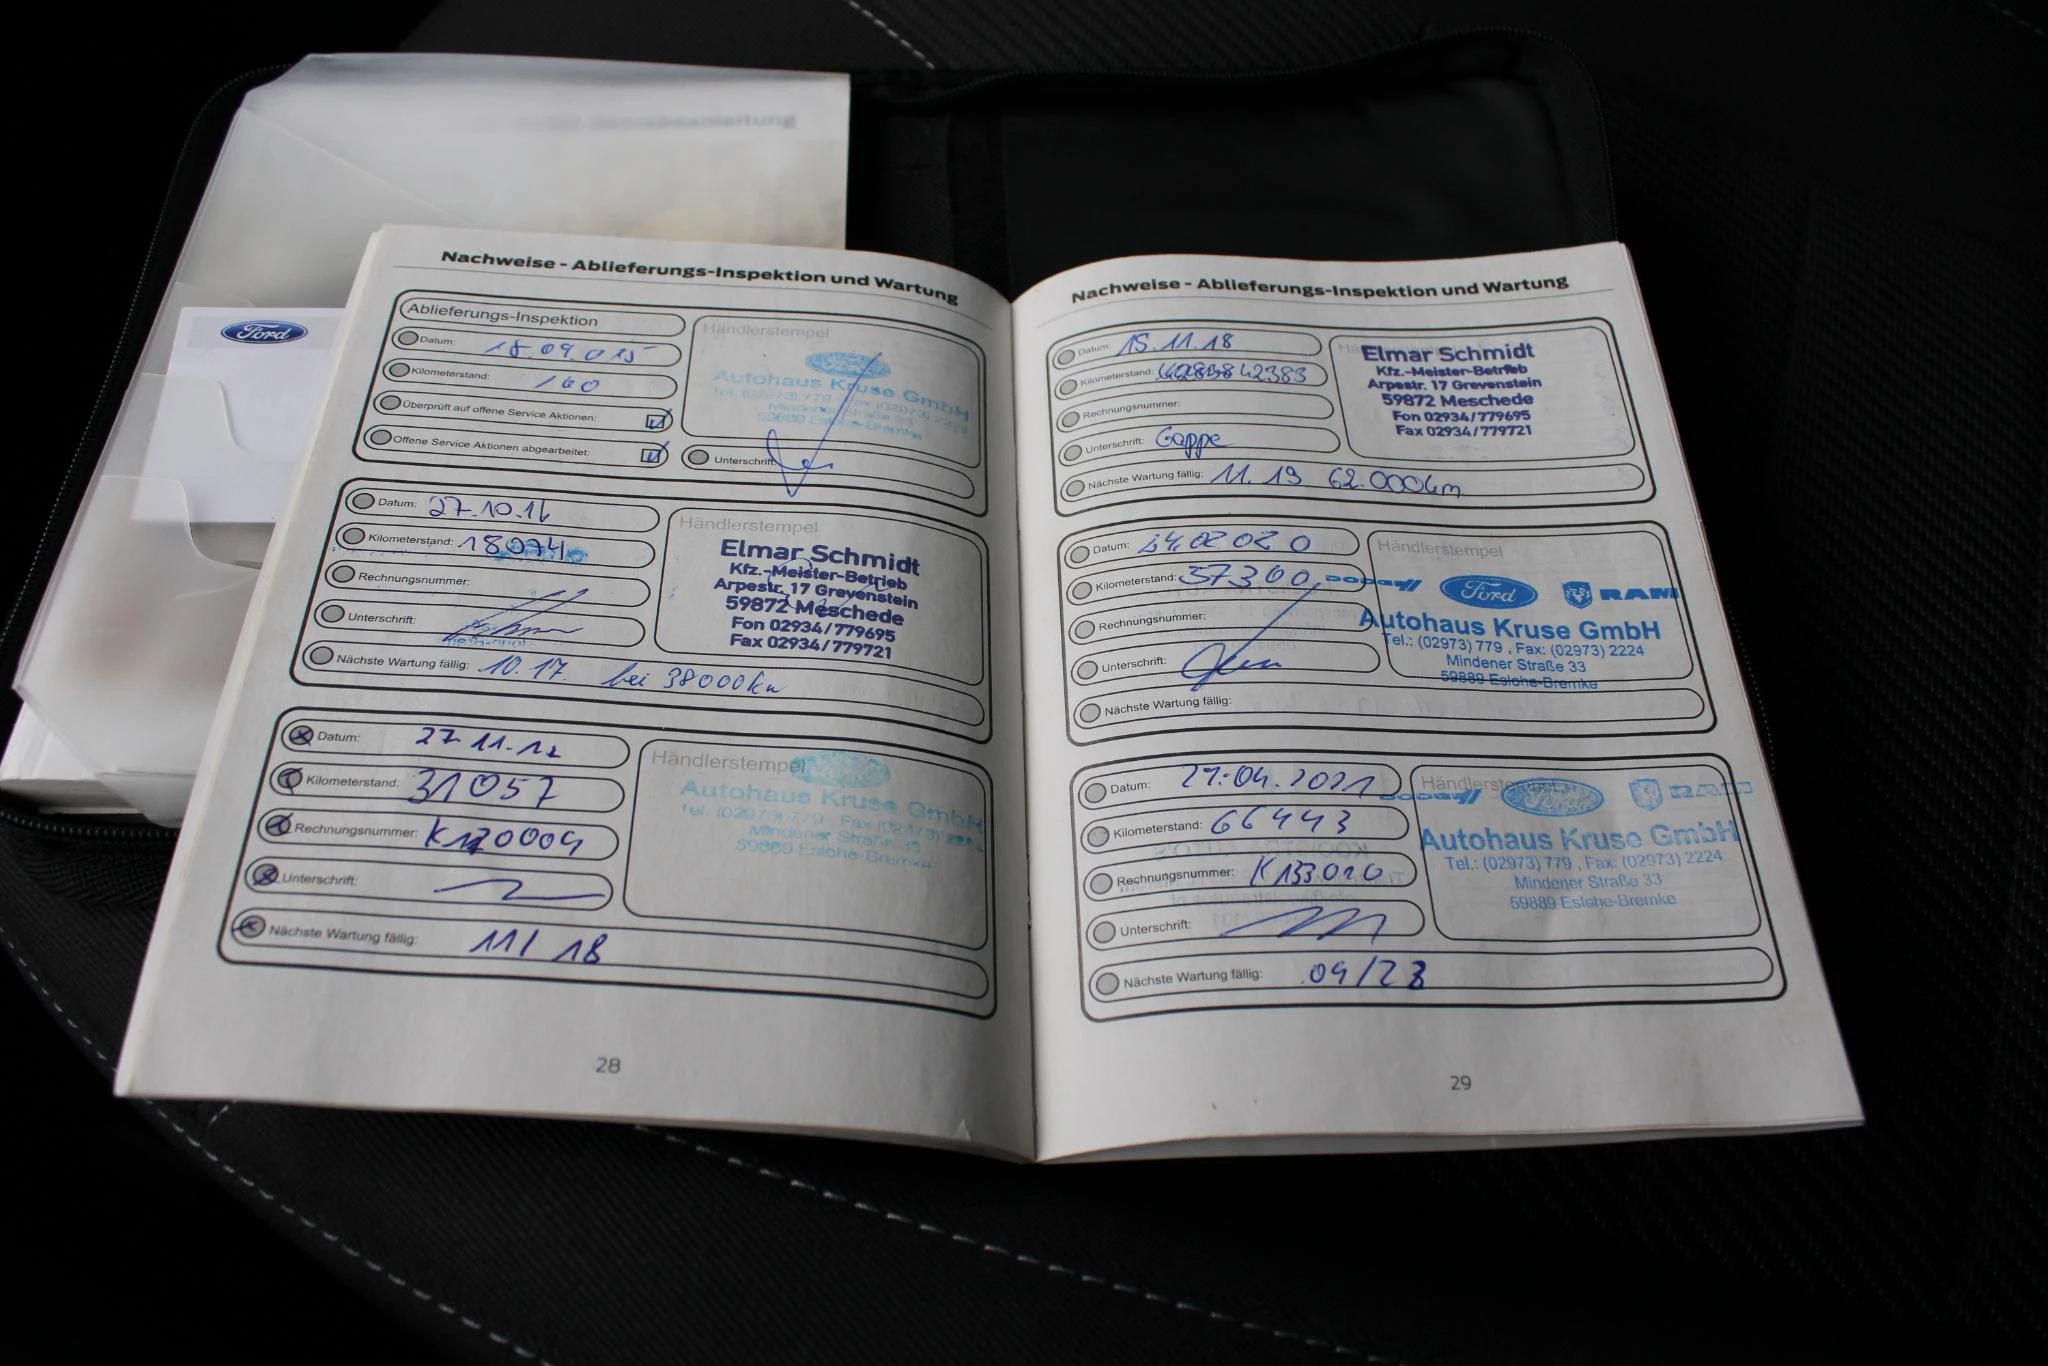 Betriebsanleitung
Ford
Nachweise - Ablieferungs-Inspektion und Wartung
Ablieferungs-Inspektion
Datum: 18.09.015
Kilometerstand: 160
Überprüft auf offene Service Aktionen:
Offene Service Aktionen abgearbeitet:
Händlerstempel
Ford
Autohaus Kruse GmbH
Tel. (02973) 779 · Fax (02973)
Mindener Straße 33
59889 Eslohe-Bremke
Unterschrift
Datum: 27.10.16
Kilometerstand: 18074
Rechnungsnummer:
Unterschrift:
Nächste Wartung fällig: 10.17. bei 38000km
Händlerstempel
Elmar Schmidt
Kfz.-Meister-Betrieb
Arpestr. 17 Grevenstein
59872 Meschede
Fon 02934/779695
Fax 02934/779721
Datum: 27.11.17
Kilometerstand: 31057
Rechnungsnummer:
Unterschrift:
Nächste Wartung fällig: 11/18
Händlerstempel
Autohaus Kruse GmbH
Tel. (02973) 779 · Fax (02973)
Mindener Straße 33
59889 Eslohe-Bremke
28
Nachweise - Ablieferungs-Inspektion und Wartung
Datum: 15.11.18
Kilometerstand: 42383
Rechnungsnummer:
Unterschrift: Gappe
Nächste Wartung fällig: 11.19 62.000km
Elmar Schmidt
Kfz.-Meister-Betrieb
Arpestr. 17 Grevenstein
59872 Meschede
Fon 02934/779695
Fax 02934/779721
Datum: 24.02.020
Kilometerstand: 57300
Rechnungsnummer:
Unterschrift:
Nächste Wartung fällig:
Händlerstempel
DODGE Ford RAM
Autohaus Kruse GmbH
Tel.: (02973) 779 , Fax: (02973) 2224
Mindener Straße 33
59889 Eslohe-Bremke
Datum: 27.04.2021
Kilometerstand: 66443
Rechnungsnummer: K133020
Unterschrift:
Nächste Wartung fällig: 04/23
Händlerstempel
DODGE Ford RAM
Autohaus Kruse GmbH
Tel.: (02973) 779 , Fax: (02973) 2224
Mindener Straße 33
59889 Eslohe-Bremke
29